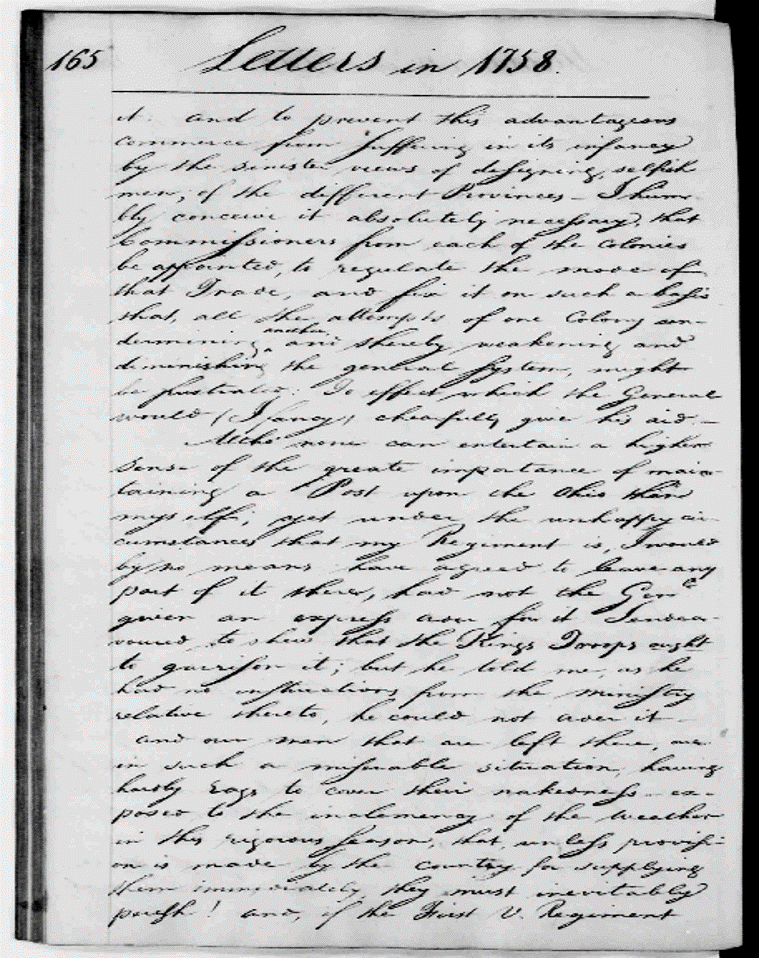 165 Letters in 1758.
it. and to prevent this advantageous
commerce from suffering in its infancy
by the sinister views of designing, selfish
men, of the different Provinces - I hum-
bly conceive it absolutely necessary, that
Commissioners from each of the Colonies
be appointed, to regulate the mode of
that Trade, and fix it on such a basis
that, all the attempts of one Colony un-
another,
dermining and thereby weakening and
diminishing the general System, might
be frustrated. To effect which the General
would (I fancy) chearfully give his aid.-
Altho' none can entertain a higher
sense of the great importance of main-
taining a Post upon the Ohio than
myself, yet under the unhappy cir
cumstances that my Regiment is, I would
by no means have agreed to leave any
part of it there, had not the Genl
given an express order for it I endea-
voured, to shew that the Kings Troops ought
to garrison it; but he told me, as he
had no instructions from the ministry
relative thereto, he could not order it
and our men that are left there, are
in such a miserable situation, having
hardly rags to cover their nakedness - ex-
posed to the inclemency of the weather
in this rigorous season, that, unless provisi-
on is made by the country for supplying
them immediately they must inevitably
perish! and, if the First V. Regiment